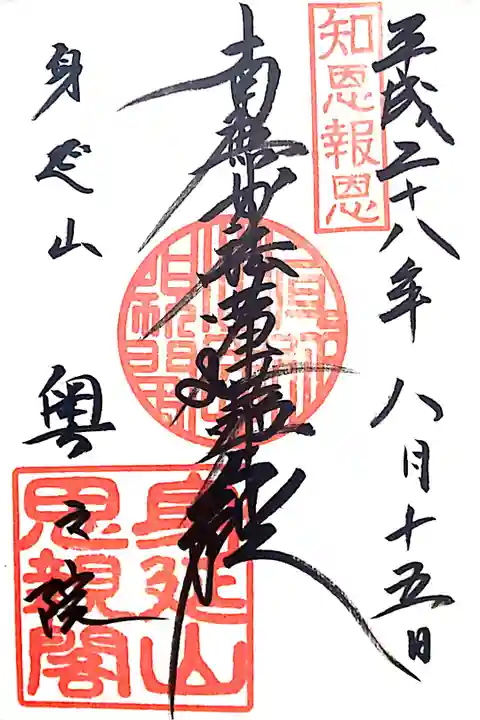 平成二十八年八月十五日
知恩報恩
南無妙法蓮華経
身延山
奥之院
身延山
思親閣